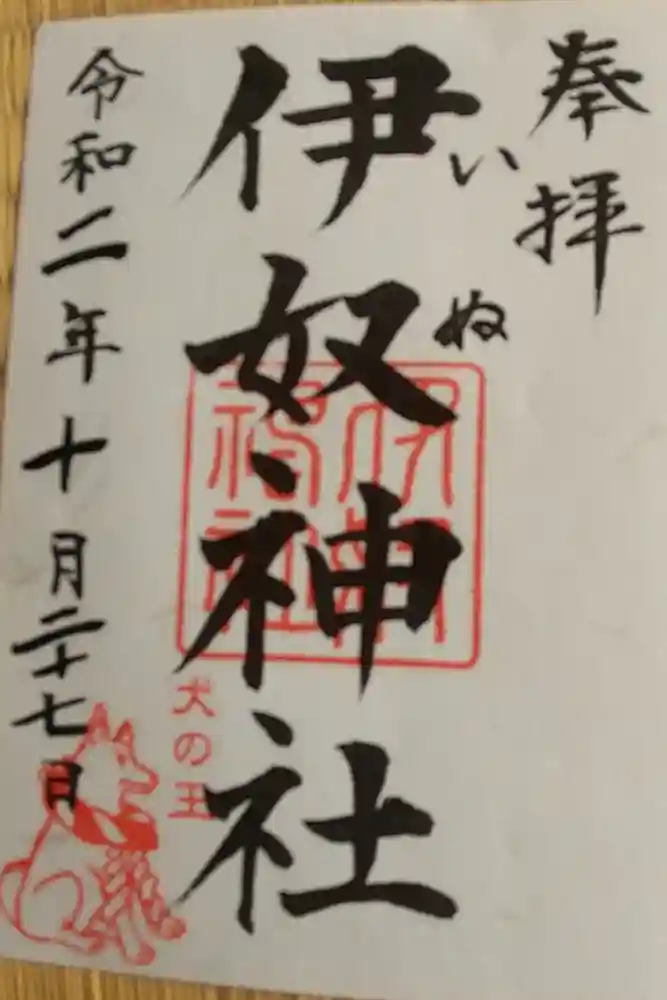 奉拝
伊奴神社
いぬ
令和二年十月二十七日
伊奴神社
犬の王